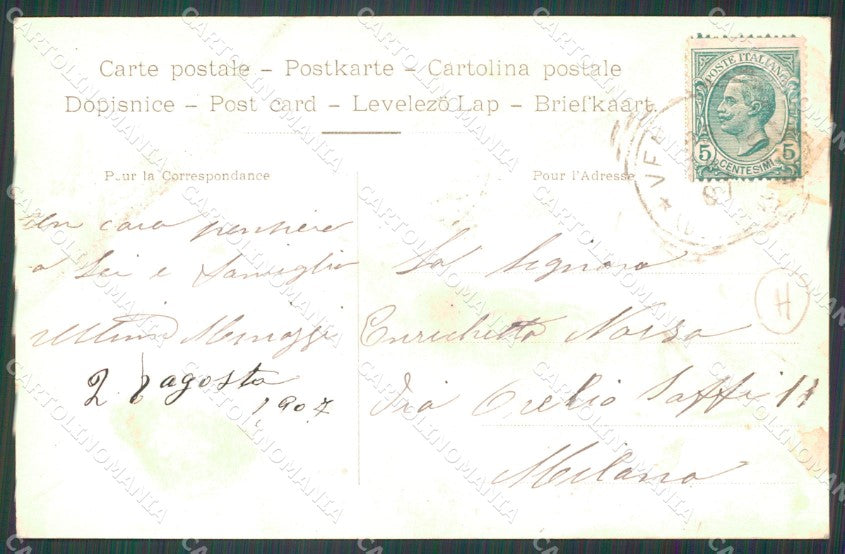 Carte postale – Postkarte – Cartolina postale
Dopisnice – Post card – Levelező Lap – Briefkaart
POSTE ITALIANE
5 CENTESIMI 5
Pour la Correspondance
Pour l'Adresse
Un caro pensiero
a Lei e famiglia
Minozzi
2 agosto
1907
La Signora
Enrichetta
Via Orelio Saffi 11
Milano
H
CARTOLINOMANIA